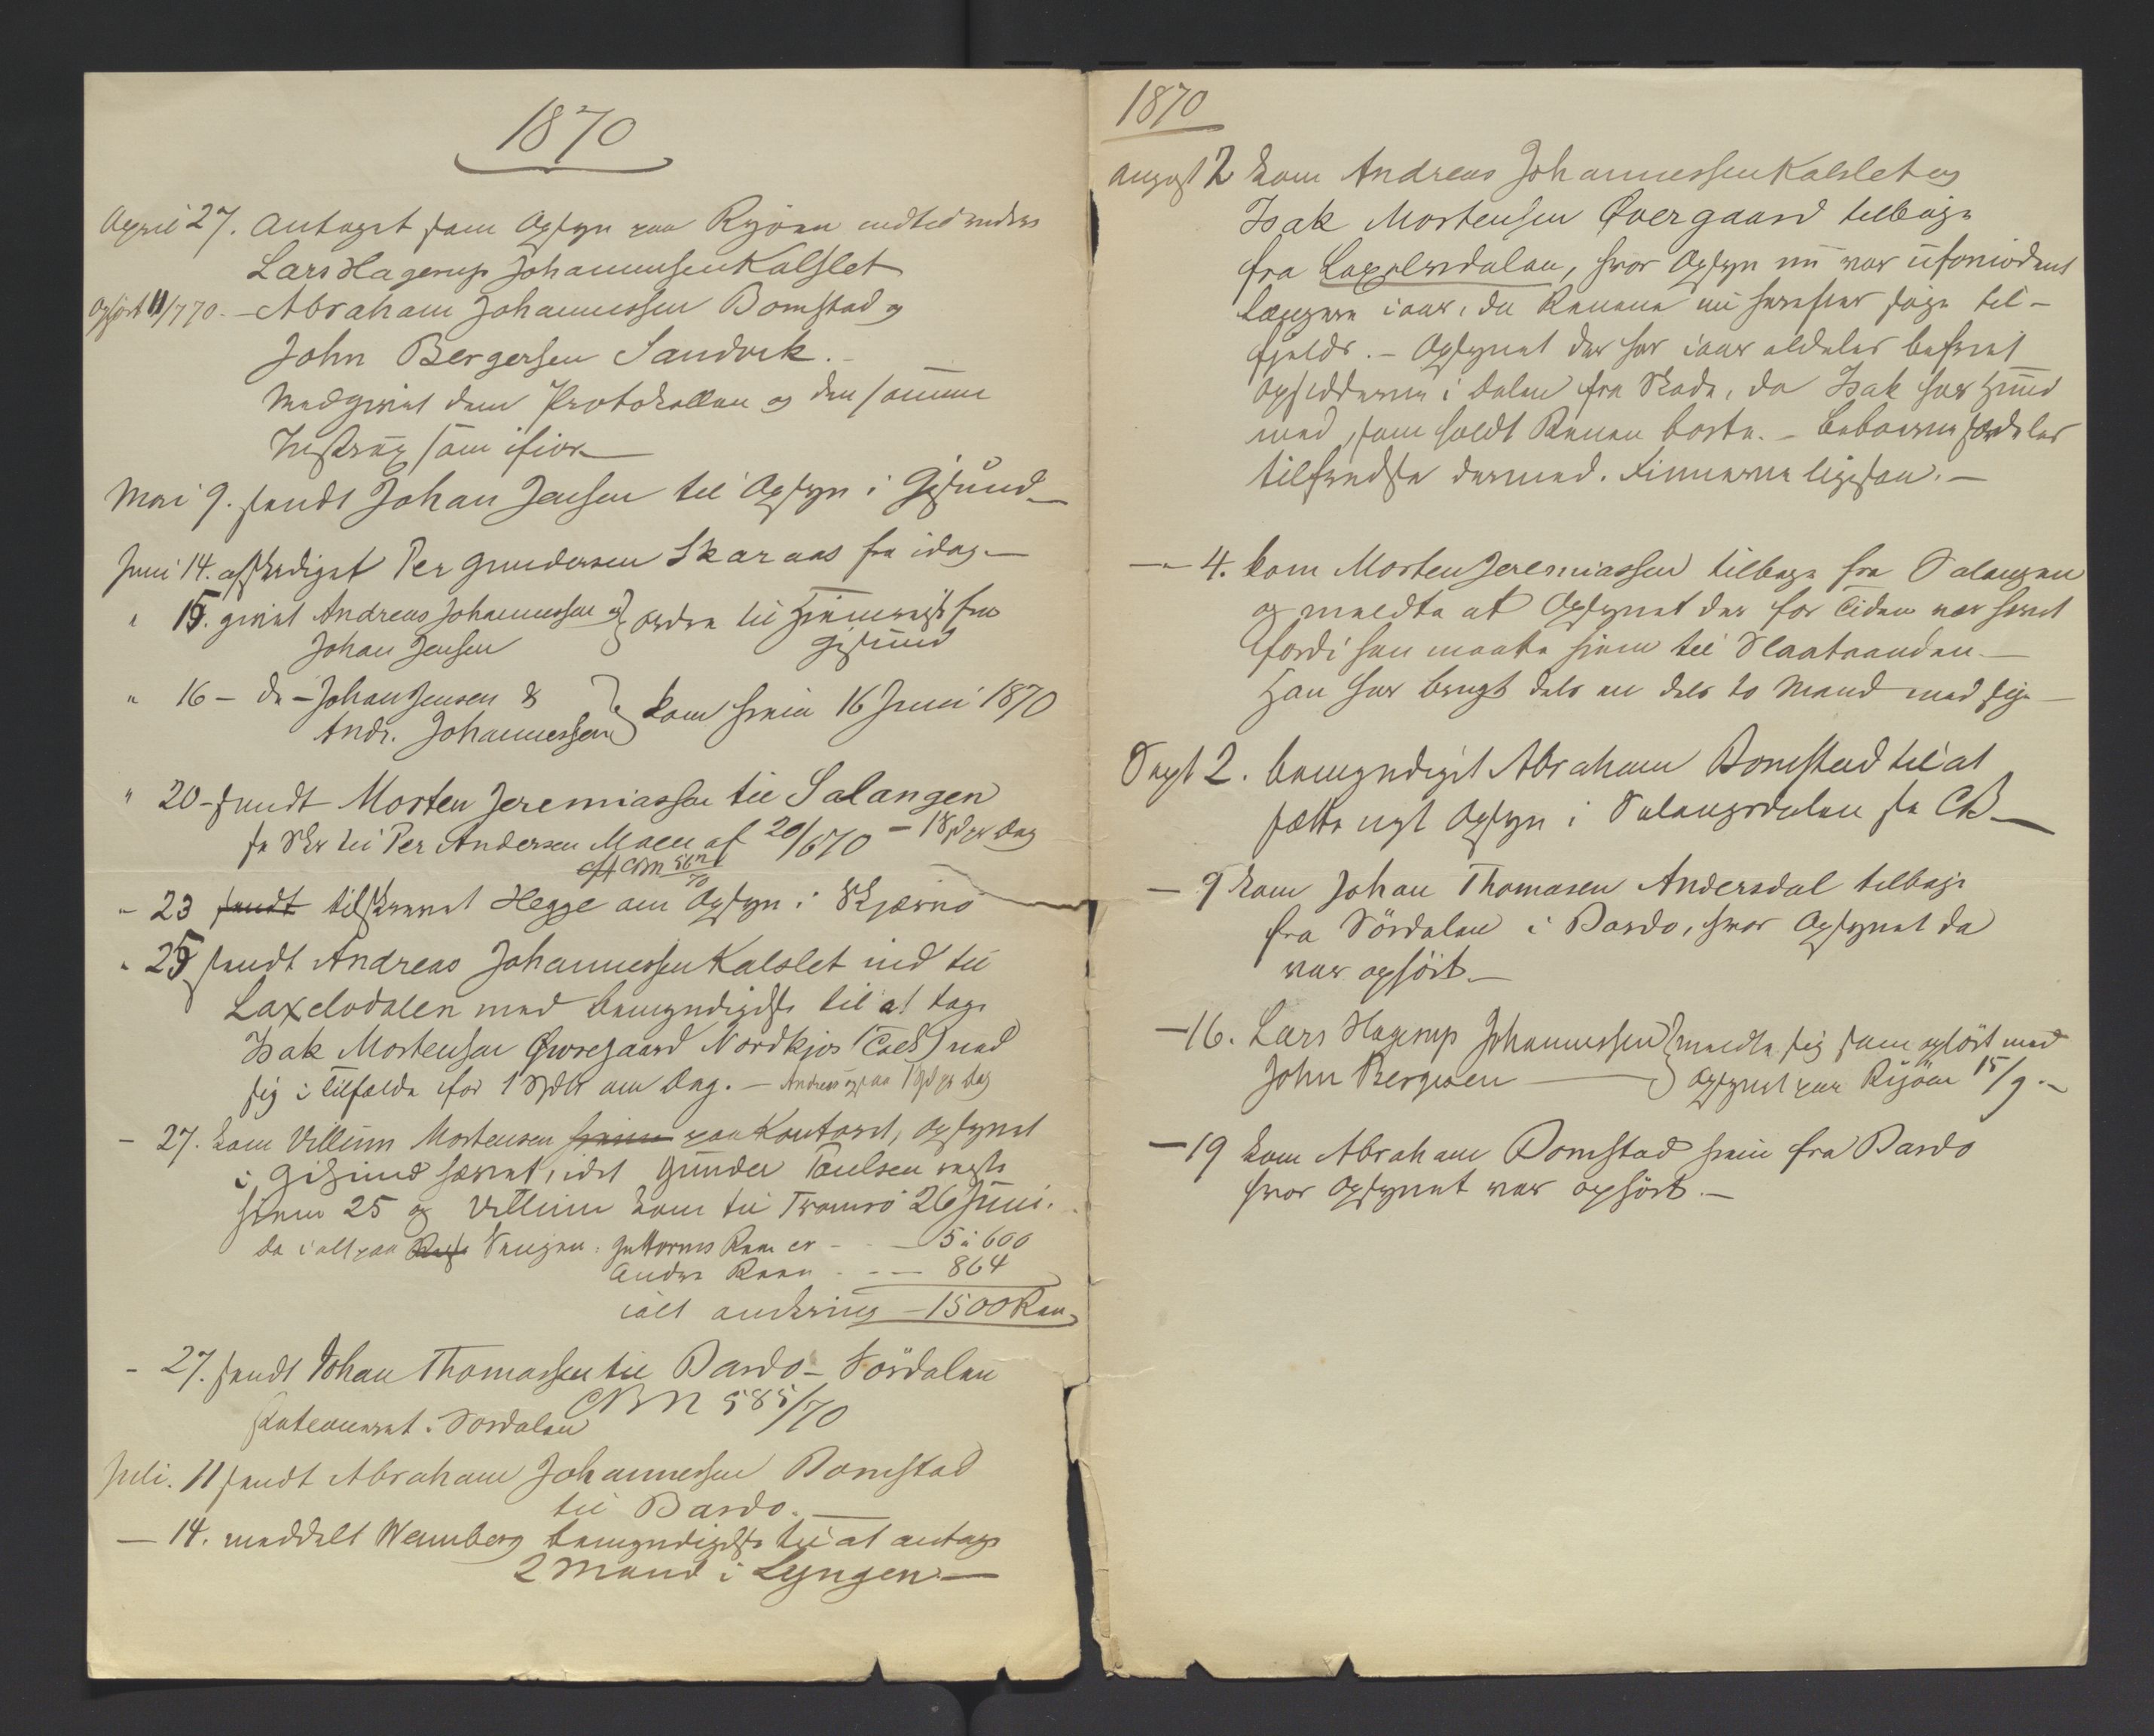 1870
April 27. Antaget som Opsyn paa Ryöen indtil videre
Lars Hagerup Johannessen Kalslet
Ophört 11/7 70. - Abraham Johannessen Bomstad og
John Bergersen Sandvik.
Medgivet dem Protokollen og den samme
Instrux som ifjor
Mai 9. sendt Johan Jensen til Opsyn i Gisund
Juni 14. afskediget Per Gundersen Skaraas fra idag.
" 15. givet Andreas Johannessen og } Ordre til Hjemreise fra
Johan Jensen Gisund
" 16 - da - Johan Jensen &
Andr. Johannessen } kom hjem 16 Juni 1870
" 20 - sendt Morten Jeremiassen til Salangen
se Skr til Per Andersen Moen af 20/6 70 - 1 Spd pr Dag
cfr CBN 562/70
- 23 sendt tilskrevet Hegge om Opsyn i Skjervö
" 25 sendt Andreas Johannessen Kalslet ind til
Laxelvdalen med bemyndigelse til at tage
Isak Mortensen Øvregaard Nordkjos (Balsf) med
sig i Tilfælde for 1 Spdlr om Dag. - Andreas ogsaa 1 Spd pr Dag
- 27. kom Villum Mortensen hjem paa Kontoret, Opsynet
i Gisund hævet, idet Gunder Paulsen reiste
hjem 25 og Villum kom til Tromsö 26 Juni.
Da i alt paa Senjen: Guttorms Ren er - - 5 à 600
Andre Reen - - - 864
ialt omkring - 1500 Ren
- 27. sendt Johan Thomassen til Bardo - Sördalen
CBN 585/70
Sördalen
Juli. 11 sendt Abraham Johannessen Bomstad
til Bardo.
- 14. meddelt Wennberg bemyndigelse til at antage
2 Mand i Lyngen -
1870
August 2 kom Andreas Johannessen Kalslet og
Isak Mortensen Øvergaard tilbage
fra Laxelvdalen, hvor Opsyn nu var ufornödent
længere iaar, da Renene nu herefter söge til-
fjelds. - Opsynet der har iaar aldeles befriet
Opsidderne i Dalen fra Skade, da Isak har Hund
med, som holdt Renen borte. - Beboerne særdeles
tilfredse dermed. Finnerne ligesaa. -
- " - 4. kom Morten Jeremiassen tilbage fra Salangen
og meldte at Opsynet der for Tiden var hævet
fordi han maatte hjem til Slaataanden. -
Han har brugt dels en dels to Mand med sig -
Sept 2. bemyndiget Abraham Bomstad til at
sætte nyt Opsyn i Salangsdalen se CB -
- 9 kom Johan Thomasen Andersdal tilbage
fra Sördalen i Bardo, hvor Opsynet da
var ophört. -
- 16. Lars Hagerup Johannessen } meldte sig som ophört med
John Bergersen - Opsynet paa Ryöen 15/9. -
- 19 kom Abraham Bomstad hjem fra Bardo
hvor Opsynet var ophört. -